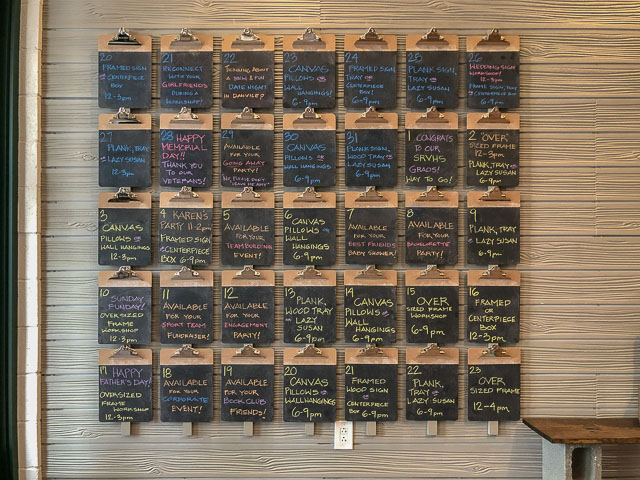 20
FRAMED SIGN
or CENTERPIECE
BOX
12-3pm
21
RECONNECT
WITH YOUR
GIRLFRIENDS
DURING A
WORKSHOP!
22
THINKING ABOUT
A NEW & FUN
DATE NIGHT
IN DANVILLE?
23
CANVAS
PILLOWS or
WALL
HANGINGS!
6-9pm
24
FRAMED SIGN,
TRAY or
CENTERPIECE
BOX!
6-9pm
25
PLANK SIGN,
TRAY or
LAZY SUSAN
6-9pm
26
WEDDING SIGN
WORKSHOP!
12-3pm
FRAME SIGN, TRAY
or CENTERPIECE BOX
6-9pm
27
PLANK, TRAY
or LAZY SUSAN
12-3pm
28 HAPPY
MEMORIAL
DAY!!
THANK YOU
TO OUR
VETERANS!
29
AVAILABLE
FOR YOUR
GOING AWAY
PARTY!
30
CANVAS
PILLOWS or
WALL HANGINGS
6-9pm
31
PLANK SIGN,
WOOD TRAY or
LAZY SUSAN
6-9pm
1 CONGRATS
TO OUR
SRVHS
GRADS!
WAY TO GO!
2 "OVER"
SIZED FRAME
12-3pm
PLANK, TRAY or
LAZY SUSAN
6-9pm
3
CANVAS
PILLOWS or
WALL HANGINGS
12-3pm
4 KAREN'S
PARTY 11-2pm
FRAMED SIGN
or CENTERPIECE
BOX 6-9pm
5
AVAILABLE
FOR YOUR
TEAM BUILDING
EVENT!
6
CANVAS
PILLOWS or
WALL
HANGINGS
6-9pm
7
AVAILABLE
FOR YOUR
BEST FRIENDS
BABY SHOWER!
8
AVAILABLE
FOR YOUR
BACHELORETTE
PARTY!
9
PLANK, TRAY
or LAZY SUSAN
6-9pm
10
SUNDAY
FUNDAY!
OVERSIZED
FRAME
WORKSHOP
12-3pm
11
AVAILABLE
FOR YOUR
SPORT TEAM
FUNDRAISER!
12
AVAILABLE
FOR YOUR
ENGAGEMENT
PARTY!
13
PLANK,
WOOD TRAY
or LAZY
SUSAN
6-9pm
14
CANVAS
PILLOWS or
WALL
HANGINGS
6-9pm
15
OVER
SIZED FRAME
WORKSHOP
6-9pm
16
FRAMED
OR
CENTERPIECE
BOX
12-3pm
17 HAPPY
FATHER'S DAY!
OVERSIZED
FRAME WORKSHOP
12-3pm
18
AVAILABLE
FOR YOUR
CORPORATE
EVENT!
19
AVAILABLE
FOR YOUR
BOOK CLUB
FRIENDS!
20
CANVAS
PILLOWS or
WALL HANGINGS
6-9pm
21
FRAMED
WOOD SIGN
or
CENTERPIECE
BOX 6-9pm
22
PLANK,
TRAY or
LAZY SUSAN
6-9pm
23
OVER
SIZED FRAME
12-4pm